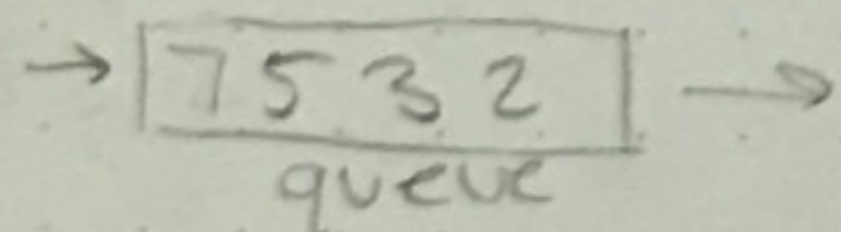 7 5 3 2
queue